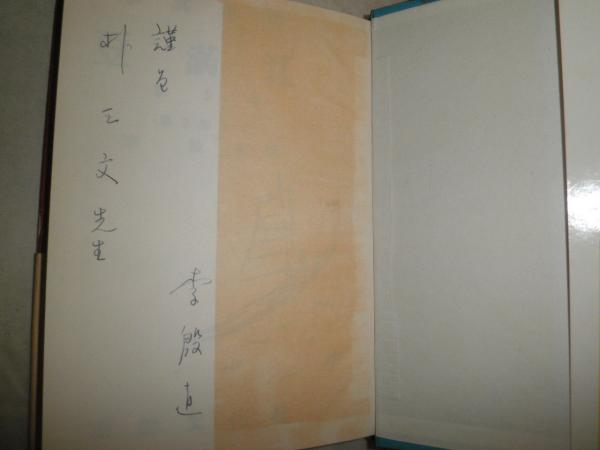 謹呈
朴三文先生
李殷直